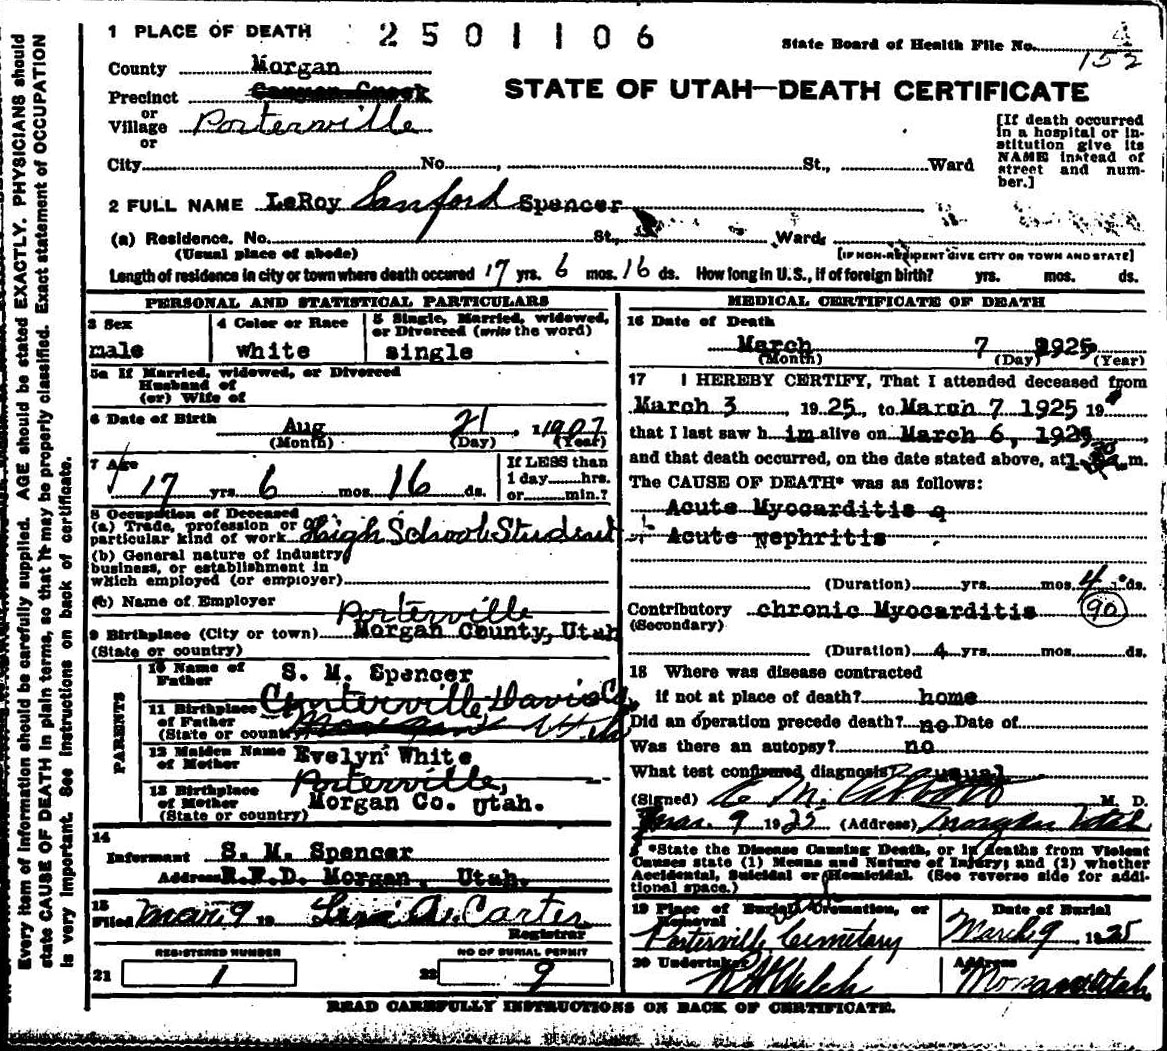 1 PLACE OF DEATH 2501106
State Board of Health File No. 4
152
County Morgan
STATE OF UTAH—DEATH CERTIFICATE
Precinct Canyon Creek
or
Village Porterville
or
City No. , St., Ward
[If death occurred
in a hospital or in-
stitution give its
NAME instead of
street and num-
ber.]
2 FULL NAME LeRoy Sanford Spencer
(a) Residence. No. St., Ward,
(Usual place of abode) [IF NON-RESIDENT GIVE CITY OR TOWN AND STATE]
Length of residence in city or town where death occured 17 yrs. 6 mos. 16 ds. How long in U.S., if of foreign birth? yrs. mos. ds.
PERSONAL AND STATISTICAL PARTICULARS
3 Sex
male
4 Color or Race
white
5 Single, Married, widowed,
or Divorced (write the word)
single
5a If Married, widowed, or Divorced
Husband of
(or) Wife of
6 Date of Birth Aug 21, 1907
(Month) (Day) (Year)
7 Age
17 yrs. 6 mos. 16 ds.
If LESS than
1 day hrs.
or min.?
8 Occupation of Deceased
(a) Trade, profession or
particular kind of work High School Student
(b) General nature of industry
business, or establishment in
which employed (or employer)
(b) Name of Employer
Porterville
9 Birthplace (City or town) Morgan County, Utah
(State or country)
PARENTS
10 Name of
Father S. M. Spencer
Centerville Davis Co.
11 Birthplace
of Father
(State or country) Morgan Utah
12 Maiden Name
of Mother Evelyn White
Porterville,
13 Birthplace
of Mother Morgan Co. Utah.
(State or country)
14
Informant S. M. Spencer
Address R.F.D. Morgan, Utah.
15
Filed Mar 9 19 Carter
Registrar
REGISTERED NUMBER
21 1
NO OF BURIAL PERMIT
22 9
MEDICAL CERTIFICATE OF DEATH
16 Date of Death
March 7 1925
(Month) (Day) (Year)
17 I HEREBY CERTIFY, That I attended deceased from
March 3, 1925, to March 7 1925 19
that I last saw h im alive on March 6, 1925,
and that death occurred, on the date stated above, at m.
The CAUSE OF DEATH* was as follows:
Acute Myocarditis
Acute Nephritis
(Duration) yrs. mos. 4 ds.
Contributory chronic Myocarditis 90
(Secondary)
(Duration) 4 yrs. mos. ds.
18 Where was disease contracted
if not at place of death? home
Did an operation precede death? no Date of
Was there an autopsy? no
What test confirmed diagnosis? usual
(Signed) M. D.
Mar. 9 1925 (Address) Morgan Utah
*State the Disease Causing Death, or in deaths from Violent
Causes state (1) Means and Nature of Injury; and (2) whether
Accidental, Suicidal or Homicidal. (See reverse side for addi-
tional space.)
19 Place of Burial, Cremation, or
Removal
Porterville Cemetary
Date of Burial
March 9, 1925
20 Undertaker
R H Welch
Address
Morgan Utah
READ CAREFULLY INSTRUCTIONS ON BACK OF CERTIFICATE.
Every item of information should be carefully supplied. AGE should be stated EXACTLY. PHYSICIANS should
state CAUSE OF DEATH in plain terms, so that it may be properly classified. Exact statement of OCCUPATION
is very important. See instructions on back of certificate.